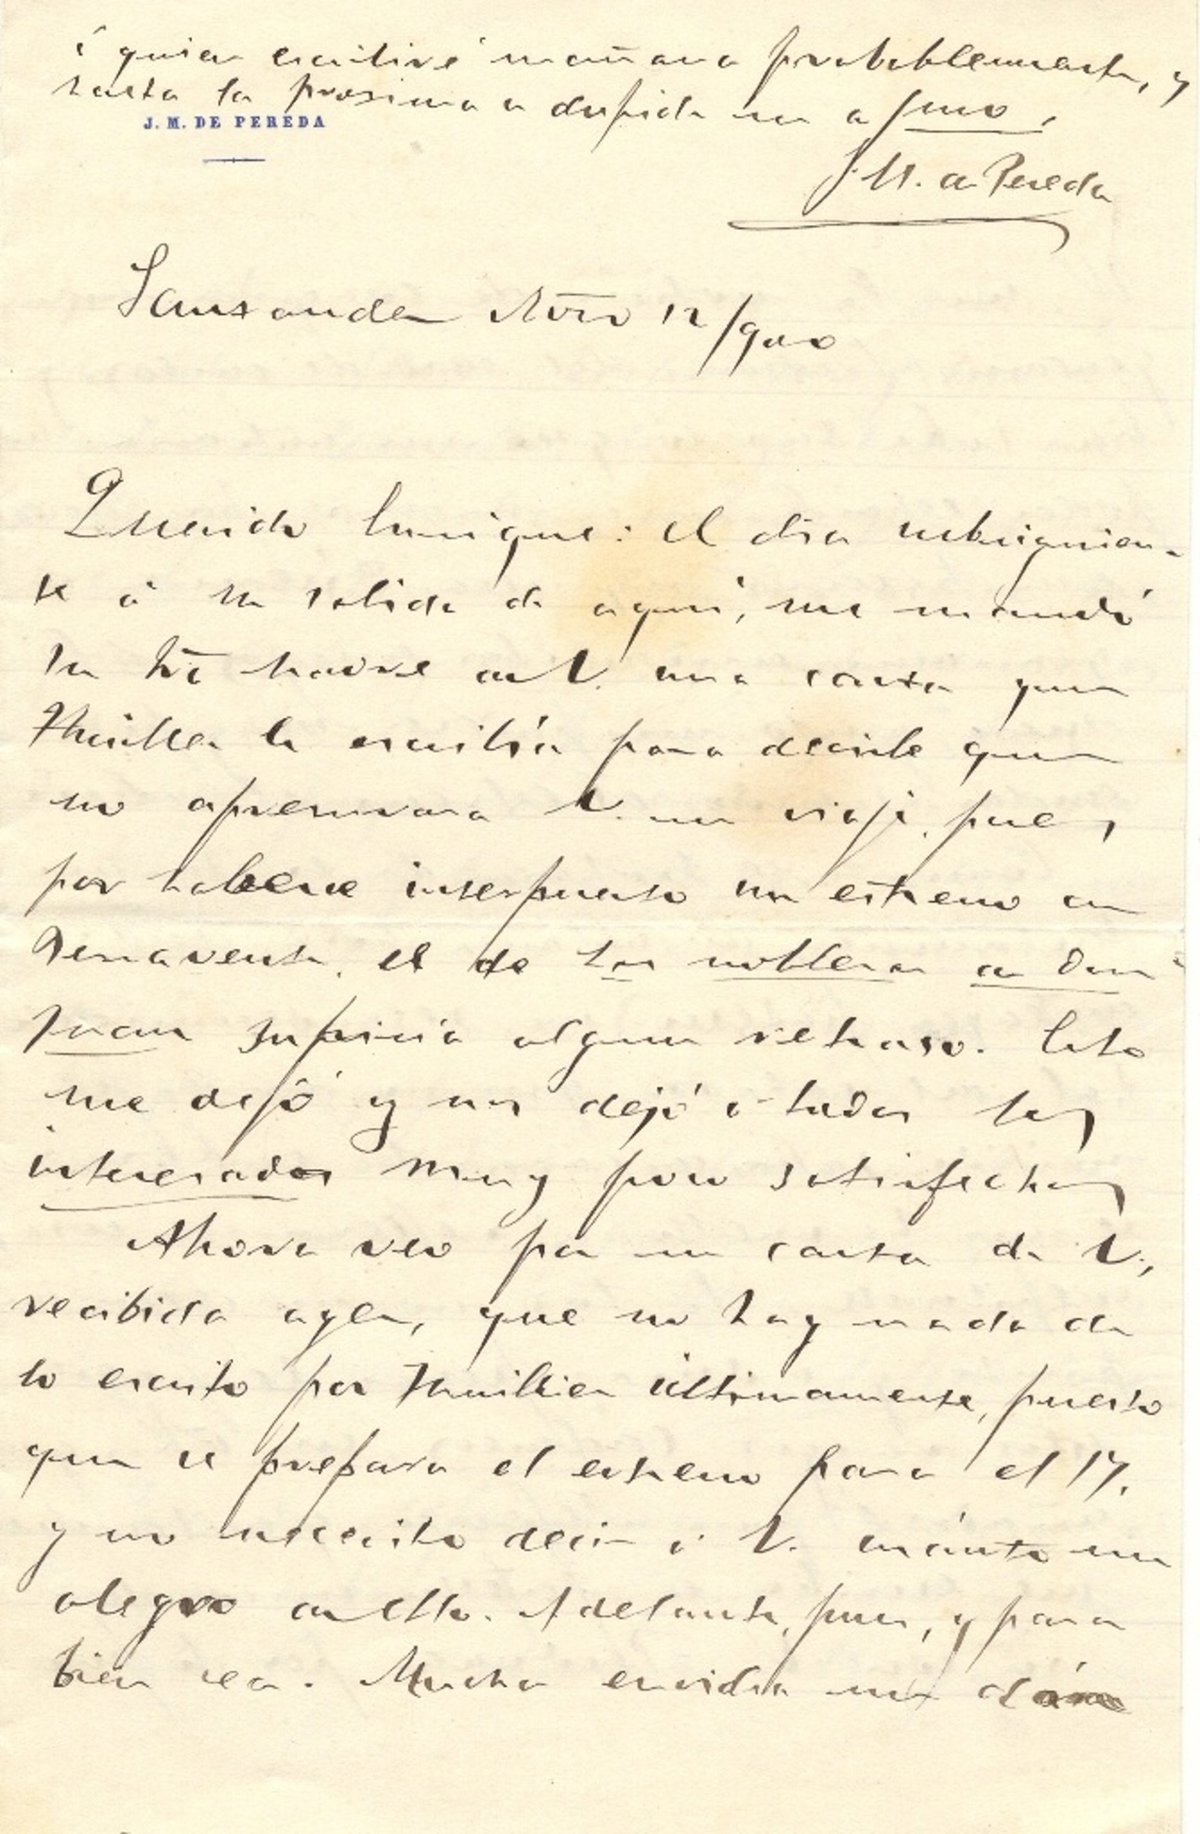 á quien escribiré mañana probablemente, y
hasta la proxima se despide su afmo.
J. M. DE PEREDA
J M. de Pereda
Santander Nov 12/900
Querido Enrique: el dia subsiguien-
te á su salida de aquí, me mandó
su madre de V. una carta que
Thuiller le escribía para decirle que
no apresurara V. su viaje, pues,
por haberse interpuesto un estreno de
Benavente, el de los
Juan sufriría algun retraso. Esto
me dejó y nos dejó á todos los
interesados muy poco satisfechos
Ahora veo por su carta de V.,
recibida ayer, que no hay nada de
lo escrito por Thuillier últimamente, puesto
que se prepara el estreno para el 17.
y no necesito decir á V. cuánto me
alegro de ello. Adelante, pues, y para
bien sea. Mucha envidia me dá